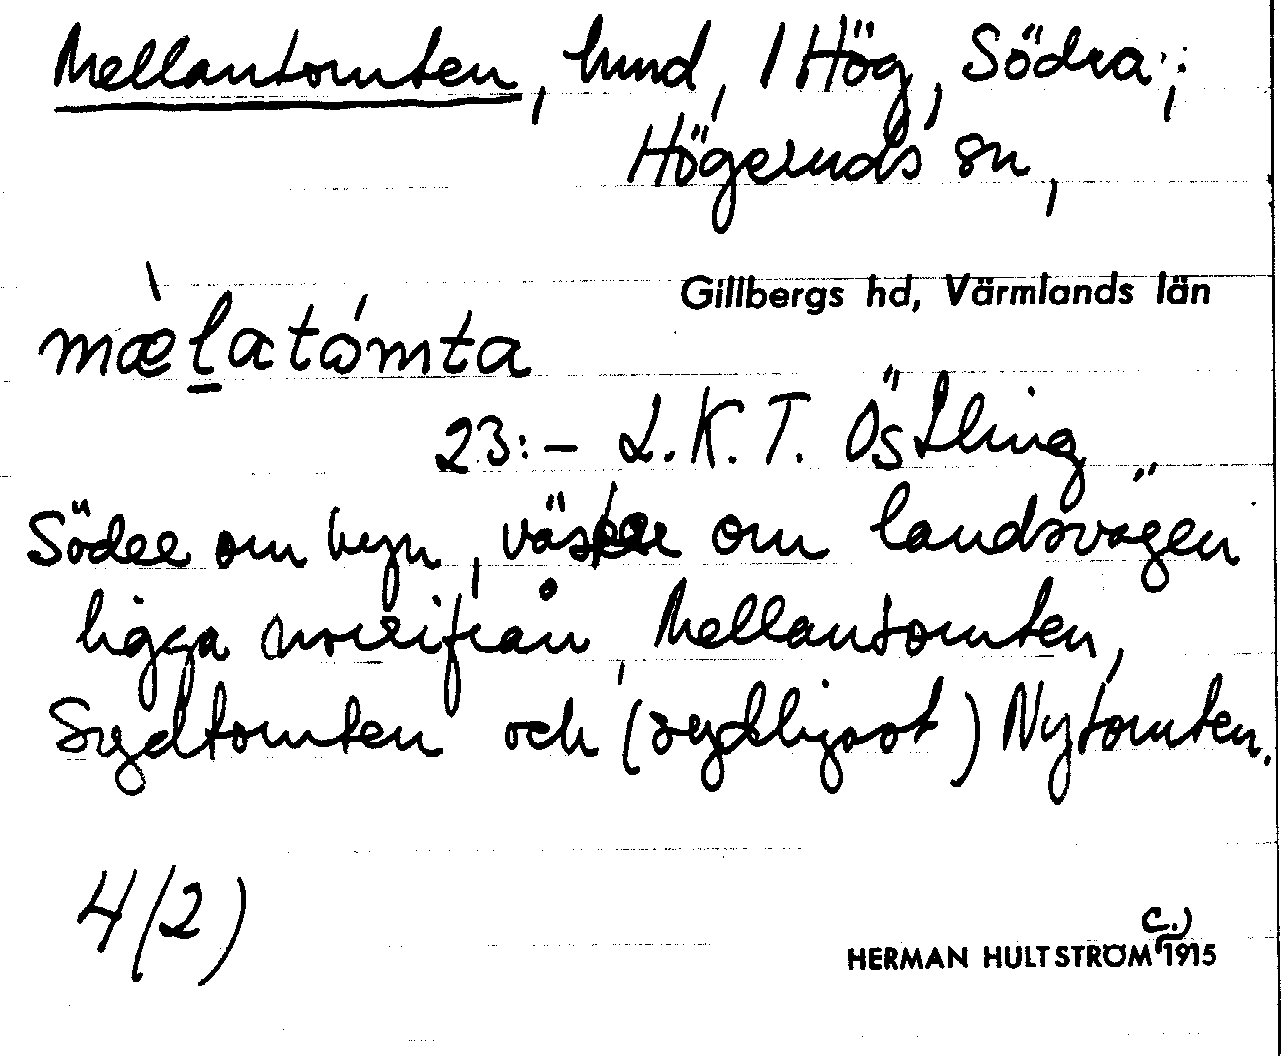 Mellantomten, hmd, 1 Hög, Södra;
Högeruds sn,
Gillbergs hd, Värmlands län
mæ̀l̠atómta
23:– L.K.T. Östling
Söder om byn, väster om landsvägen
ligga norrifrån, Mellantomten,
Sydtomten och (sydligast) Nytomten.
4/2)
C.)
HERMAN HULTSTRÖM 1915